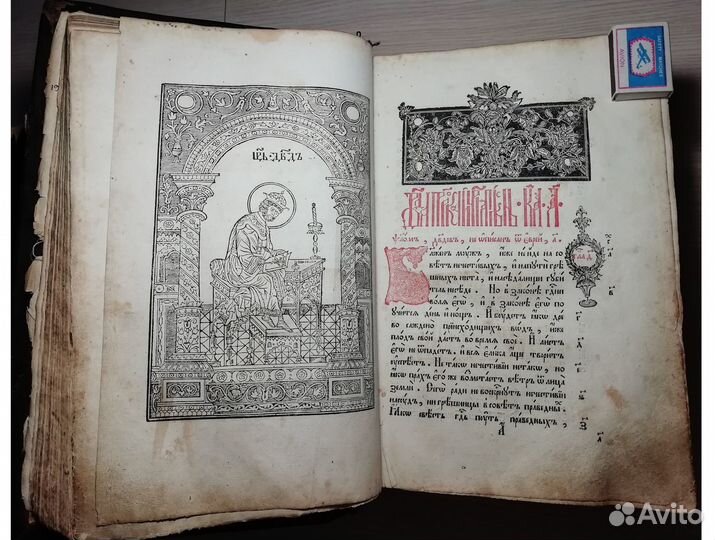 цр҃ь · дв҃дъ
ѱаломъ , дв҃довъ , не ѡписан ѿ еврей , а҃ .
Блаженъ мужъ , иже не иде на со
вѣтъ нечестивыхъ , и на пути грѣ
шныхъ не ста , и на седалищи губи
тель не седе . Но в законѣ гд҇ни
волѧ его , и в законѣ его по
учитсѧ день и нощь . И будетъ ꙗко дре
во саждено при исходищихъ водъ , еже
плодъ свой дастъ во время свое . И листъ
его не ѿпадетъ . и всѧ елика аще творитъ
успѣетъ . Не тако нечестивии не тако , но
ꙗко прахъ его же возметаетъ вѣтръ ѿ лица
земли . Сего ради не воскреснутъ нечестивии
на судъ , ни грѣшницы в совѣтъ праведных .
Ꙗко свѣсть гд҇ь путь праведныхъ ,
SAFETY MATCHES
AVION
Avito